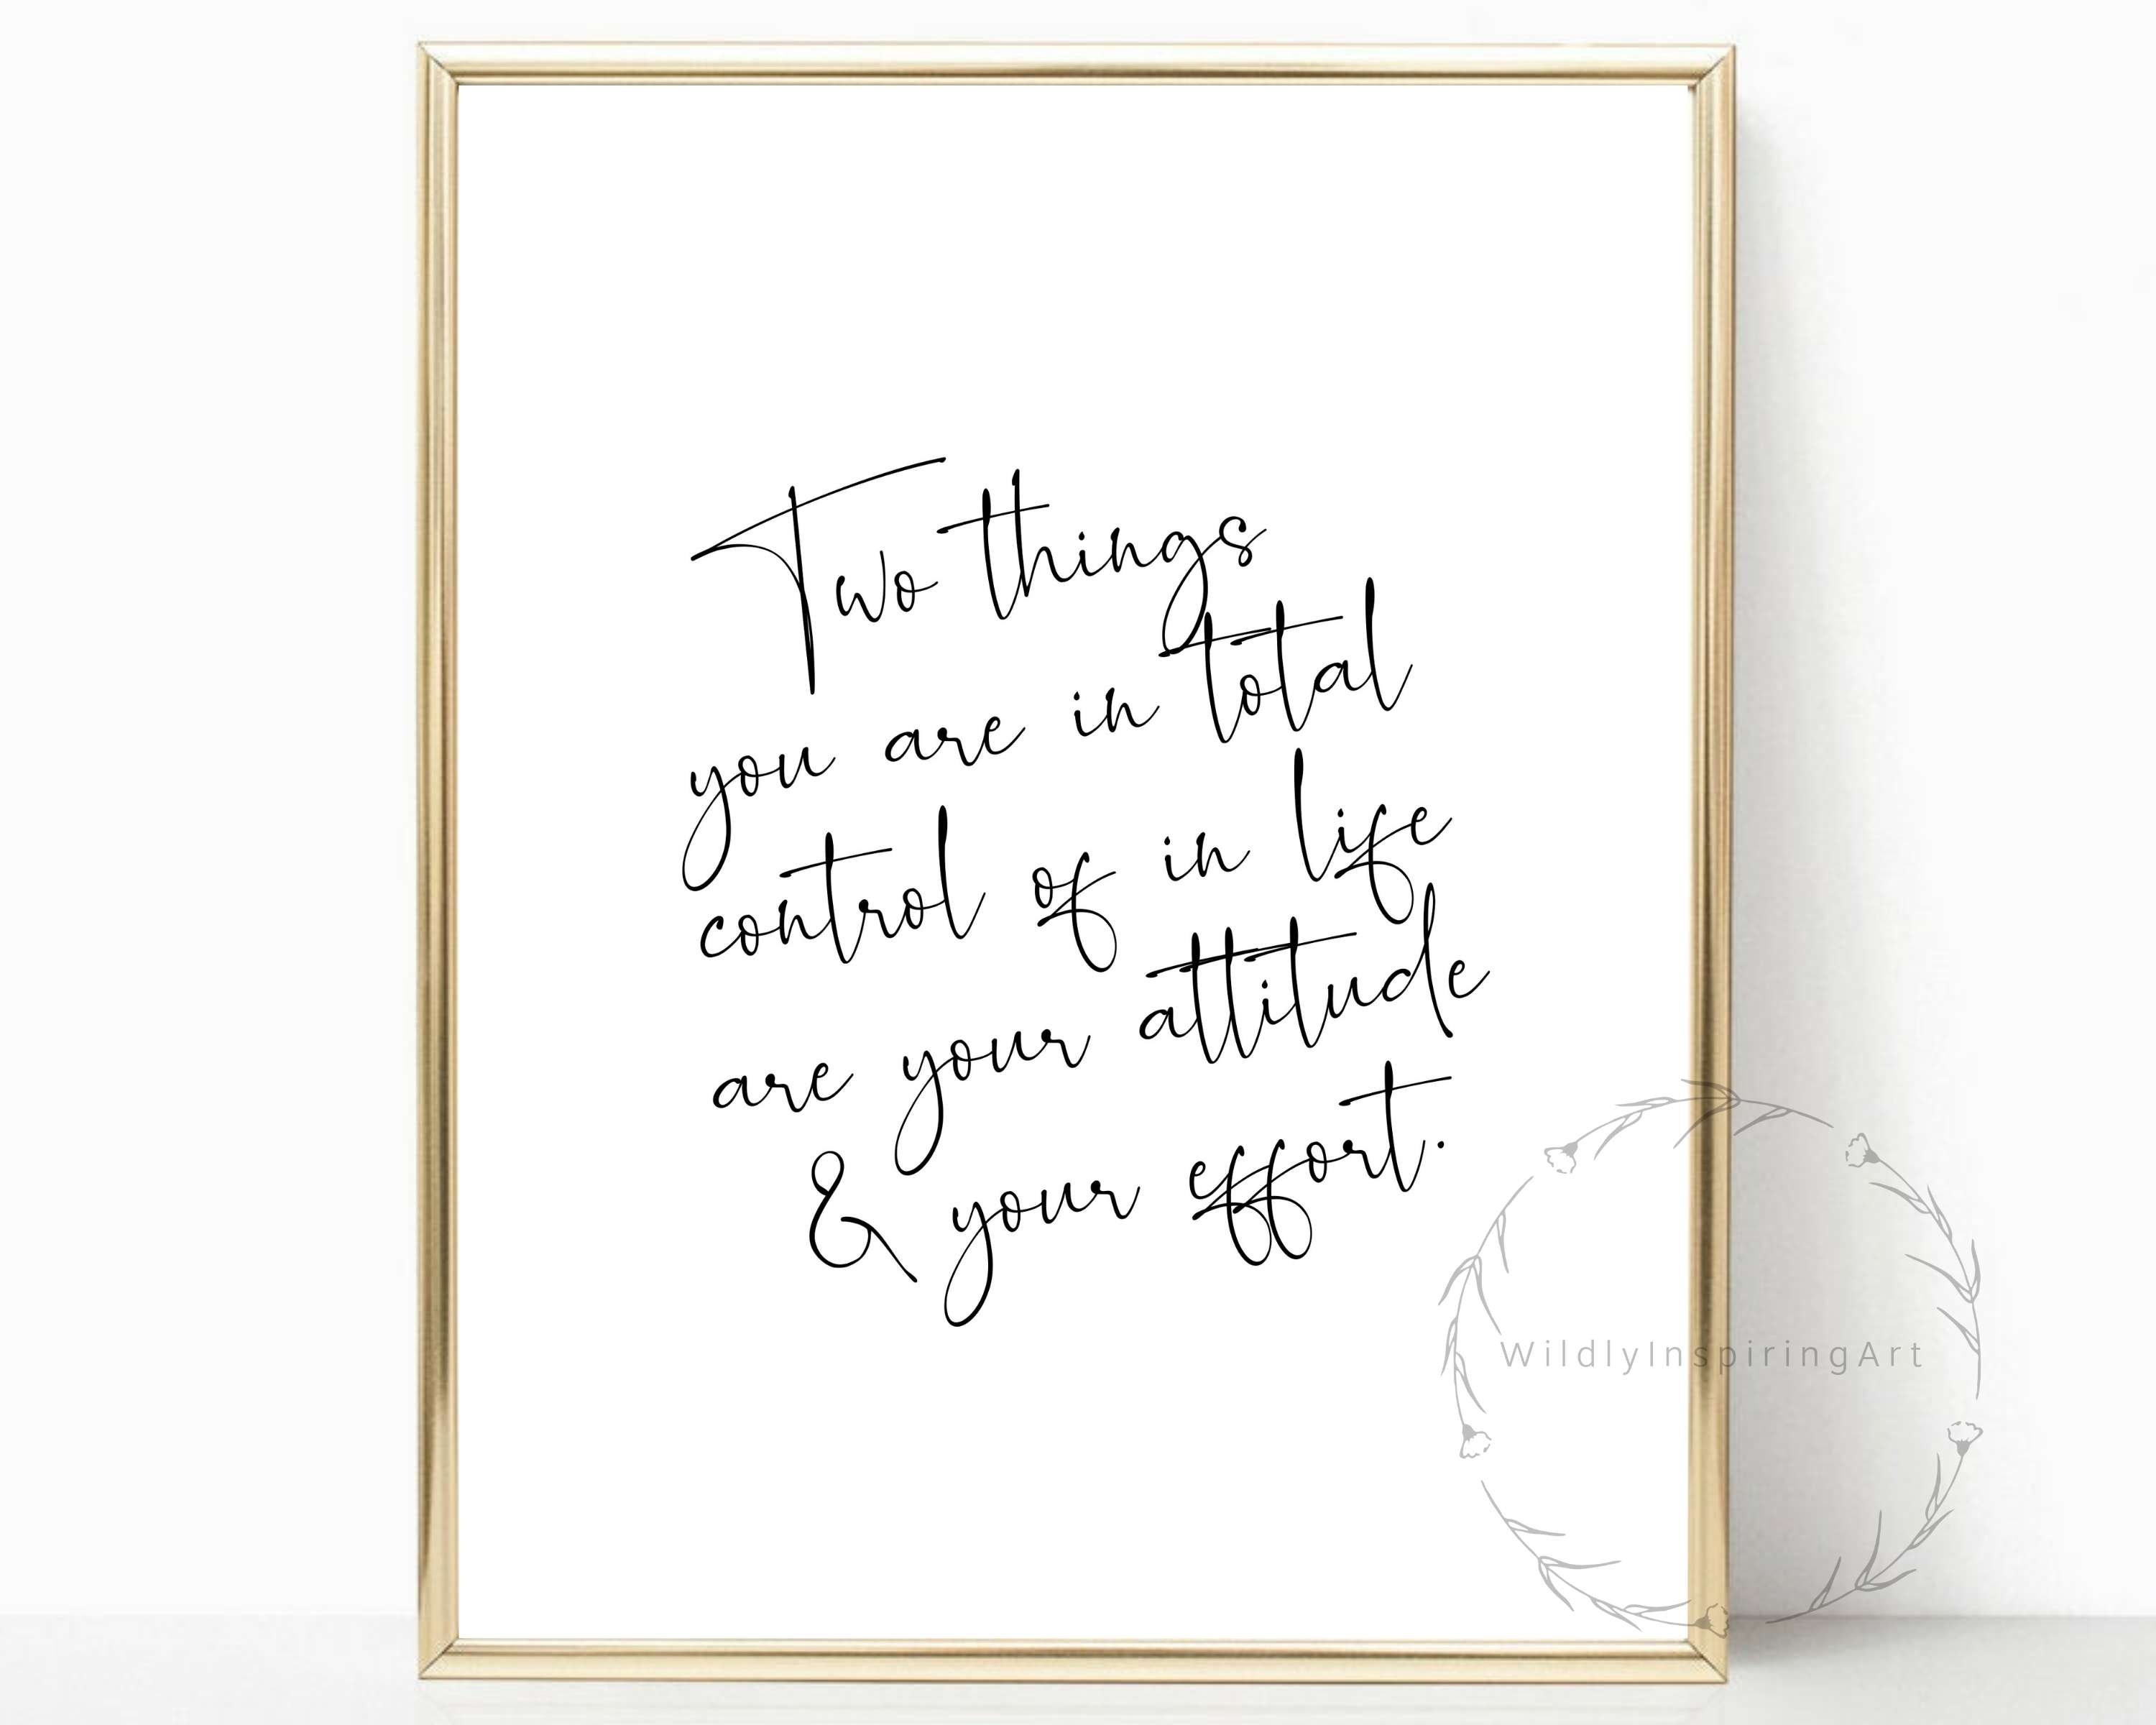 Two things
you are in total
control of in life
are your attitude
& your effort.
WildlyInspiringArt